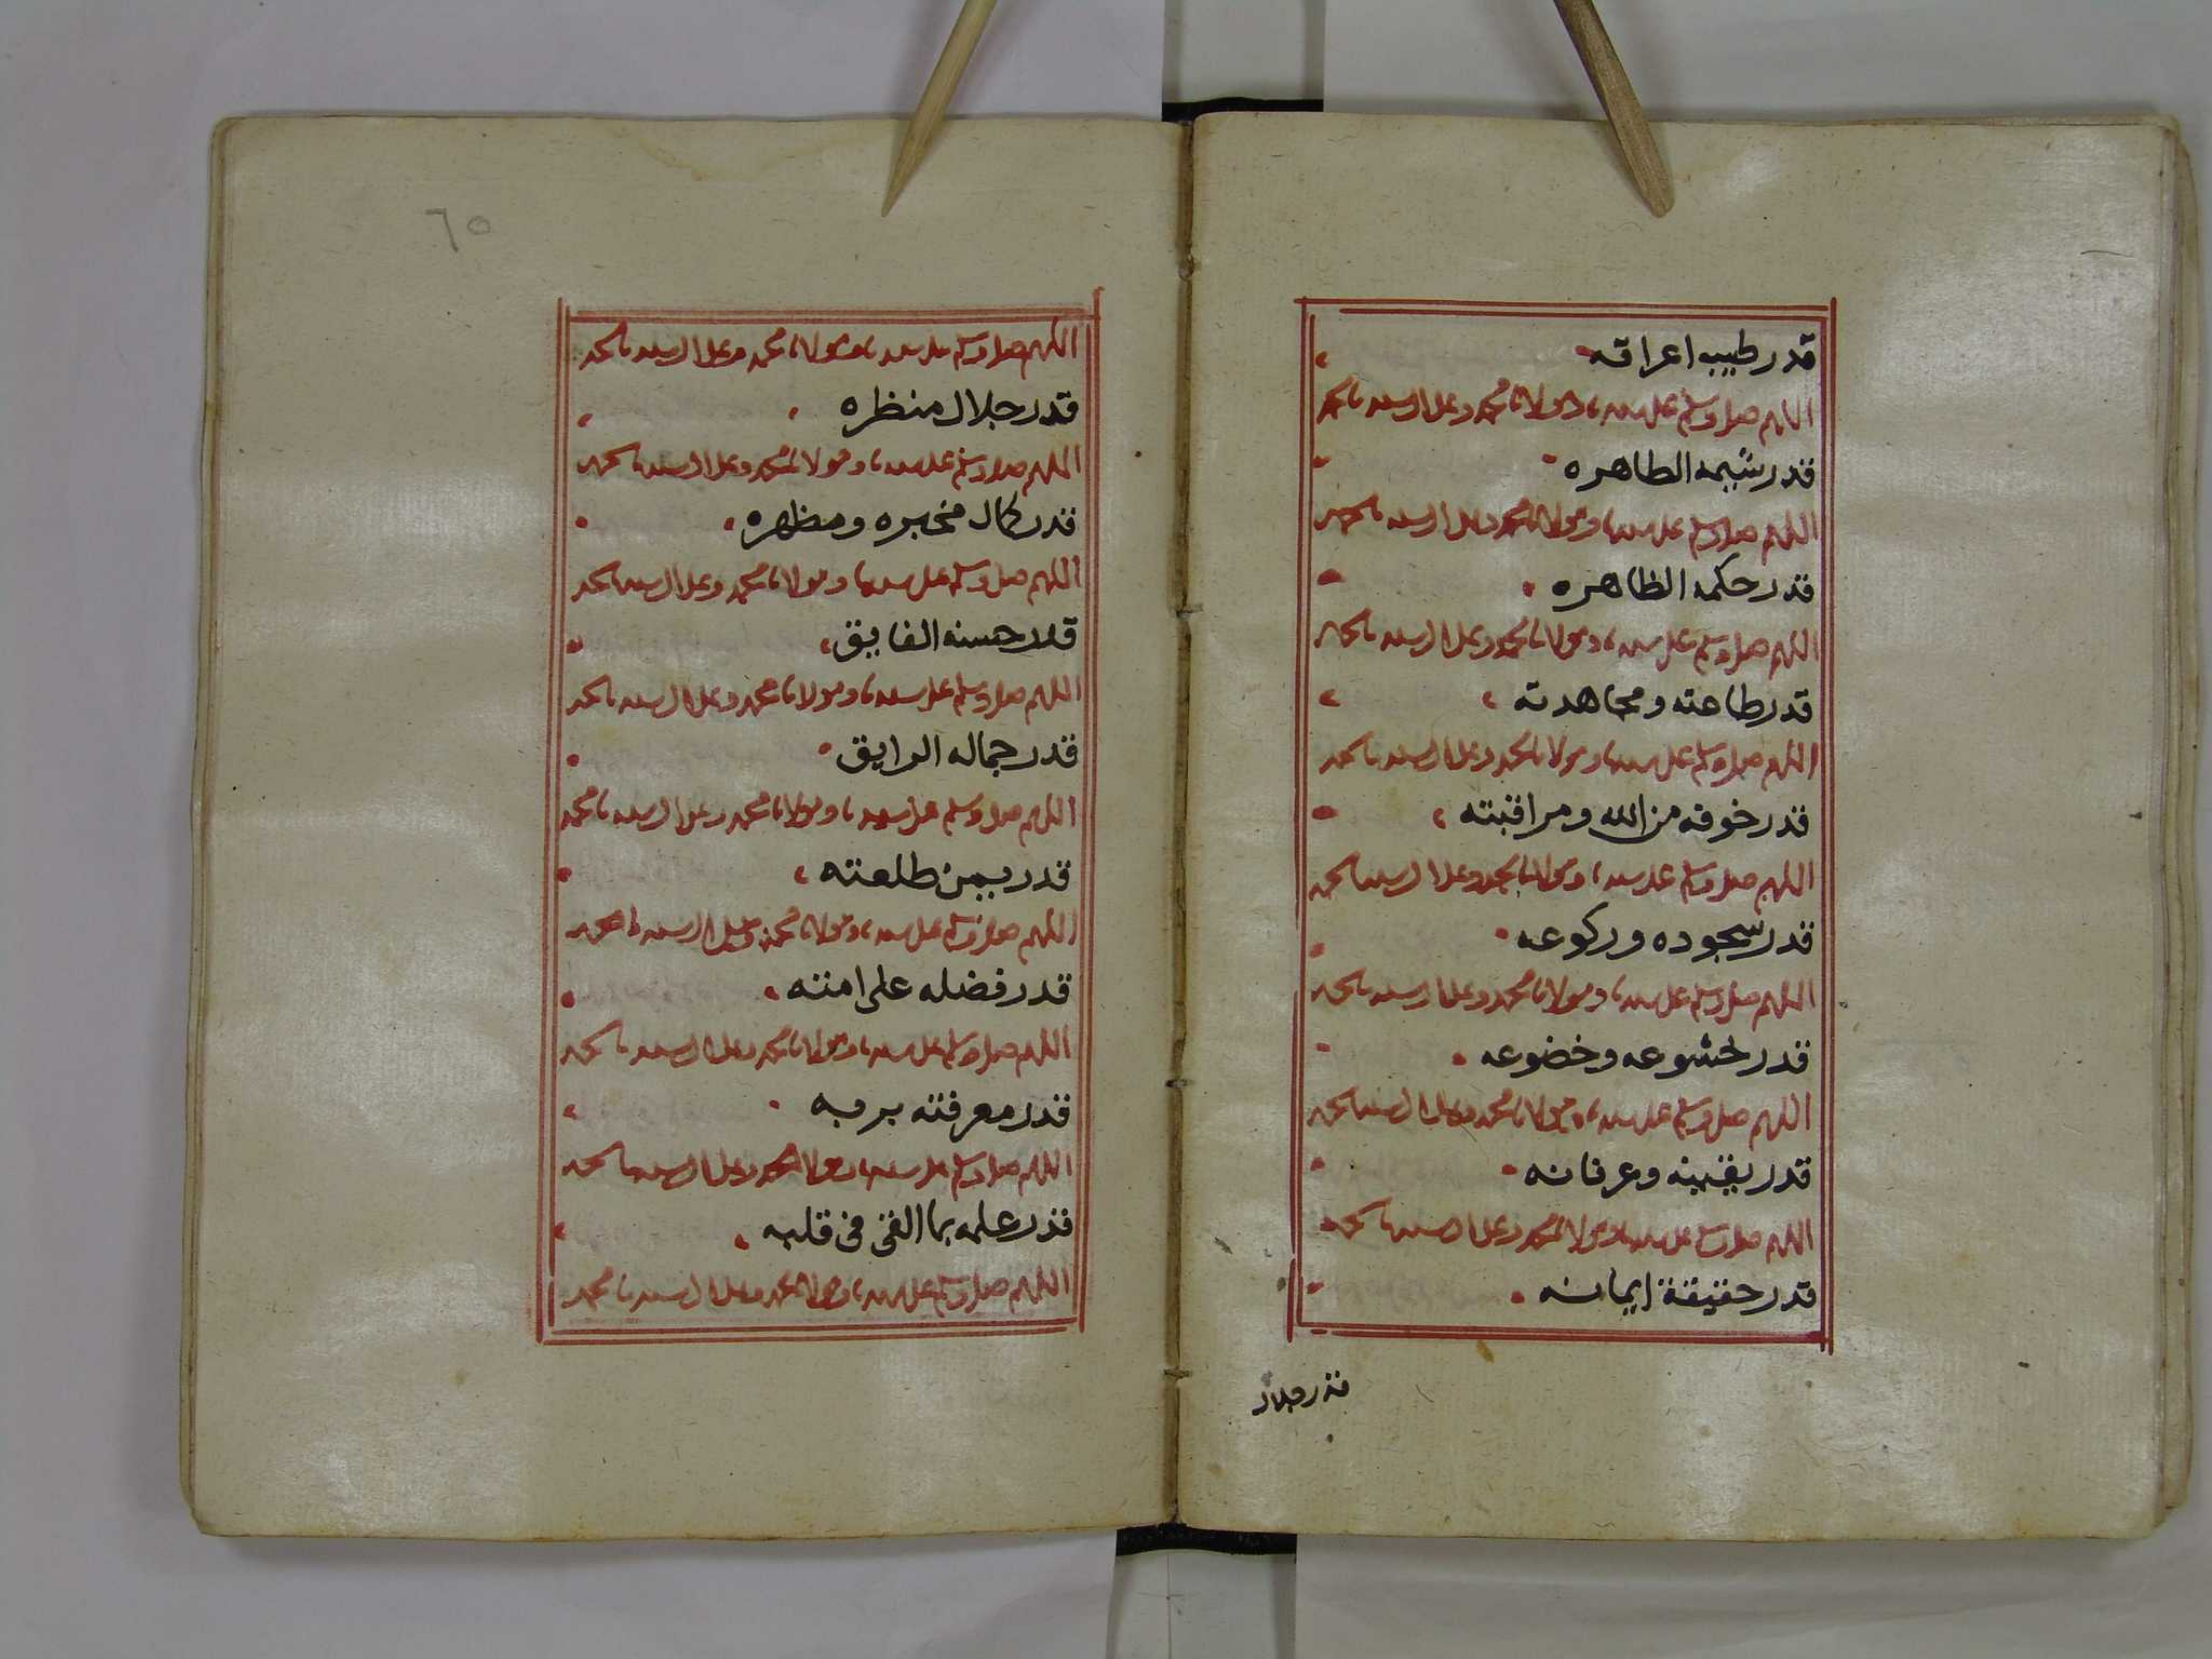 قدر طيب اعراقه
اللهم صل وسلم على سيدنا ومولانا محمد وعلى ال سيدنا محمد
قدر شيمه الطاهره
اللهم صل وسلم على سيدنا ومولانا محمد وعلى ال سيدنا محمد
قدر حكمه الظاهره
اللهم صل وسلم على سيدنا ومولانا محمد وعلى ال سيدنا محمد
قدر طاعته ومجاهدته
اللهم صل وسلم على سيدنا ومولانا محمد وعلى ال سيدنا محمد
قدر خوفه من الله ومراقبته
اللهم صل وسلم على سيدنا ومولانا محمد وعلى ال سيدنا محمد
قدر سجوده وركوعه
اللهم صل وسلم على سيدنا ومولانا محمد وعلى ال سيدنا محمد
قدر خشوعه وخضوعه
اللهم صل وسلم على سيدنا ومولانا محمد وعلى ال سيدنا محمد
قدر يقينه وعرفانه
اللهم صل وسلم على سيدنا ومولانا محمد وعلى ال سيدنا محمد
قدر حقيقة ايمانه
قدر جلال
٦٥
اللهم صل وسلم على سيدنا ومولانا محمد وعلى ال سيدنا محمد
قدر جلال منظره
اللهم صل وسلم على سيدنا ومولانا محمد وعلى ال سيدنا محمد
قدر كمال مخبره ومظهره
اللهم صل وسلم على سيدنا ومولانا محمد وعلى ال سيدنا محمد
قدر حسنه الفايق
اللهم صل وسلم على سيدنا ومولانا محمد وعلى ال سيدنا محمد
قدر جماله الرايق
اللهم صل وسلم على سيدنا ومولانا محمد وعلى ال سيدنا محمد
قدر يمن طلعته
اللهم صل وسلم على سيدنا ومولانا محمد وعلى ال سيدنا محمد
قدر فضله على امته
اللهم صل وسلم على سيدنا ومولانا محمد وعلى ال سيدنا محمد
قدر معرفته بربه
اللهم صل وسلم على سيدنا ومولانا محمد وعلى ال سيدنا محمد
قدر علمه بما القى فى قلبه
اللهم صل وسلم على سيدنا ومولانا محمد وعلى ال سيدنا محمد